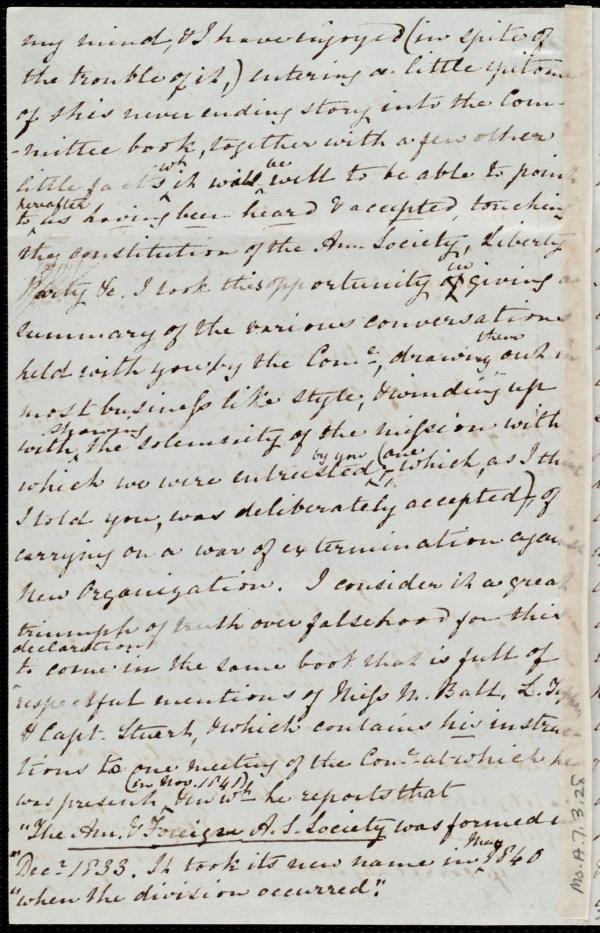 my mind, & I have enjoyed (in spite of
the trouble of it,) entering a little epitome
of this never ending story into the Com-
-mittee book, together with a few other
little facts wh it will be well to be able to point
to hereafter as having been heard & accepted, touching
the constitution of the Am. Society, Liberty
Party &c. I took this opportunity in giving a
summary of the various conversations
held with you by the Comee, drawing them out in
most business like style, & winding up
with shewing the solemnity of the mission with
which we were entrusted by you (one which, as I think
I told you, was deliberately accepted), of
carrying on a war of extermination against
New Organization. I consider it a great
triumph of truth over falsehood for this
declaration to come in the same book that is full of
respectful mentions of Miss M. Ball, L. Tappan
& Capt. Stuart, & which contains his instruc-
tions to one meeting of the Comee at which he
was present (in Nov. 1841), & in wh he reports that
"The Am. & Foreign A. S. Society was formed in
"Decr 1833. It took its new name in May 1840
"when the division occurred".
Ms.A.7.3.28